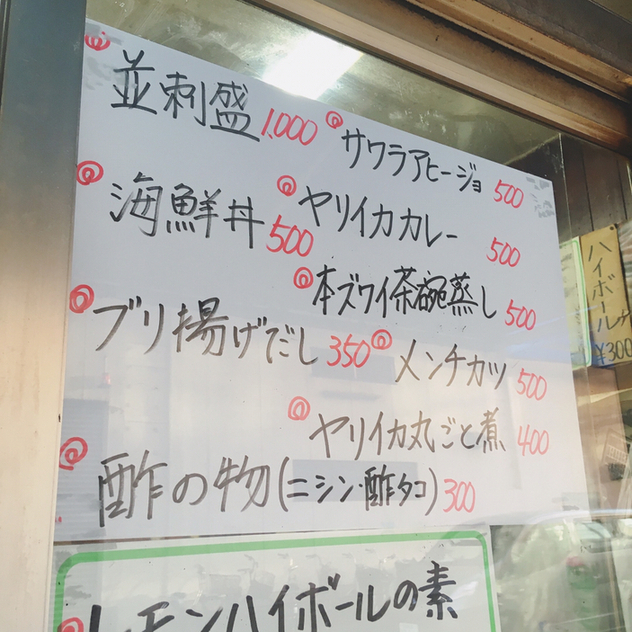 並刺盛 1.000
サワラアヒージョ 500
海鮮丼 500
ヤリイカカレー 500
本ズワイ茶碗蒸し 500
ブリ揚げだし 350
メンチカツ 500
ヤリイカ丸ごと煮 400
酢の物(ニシン・酢タコ) 300
レモンハイボールの素
ハイボール
¥300